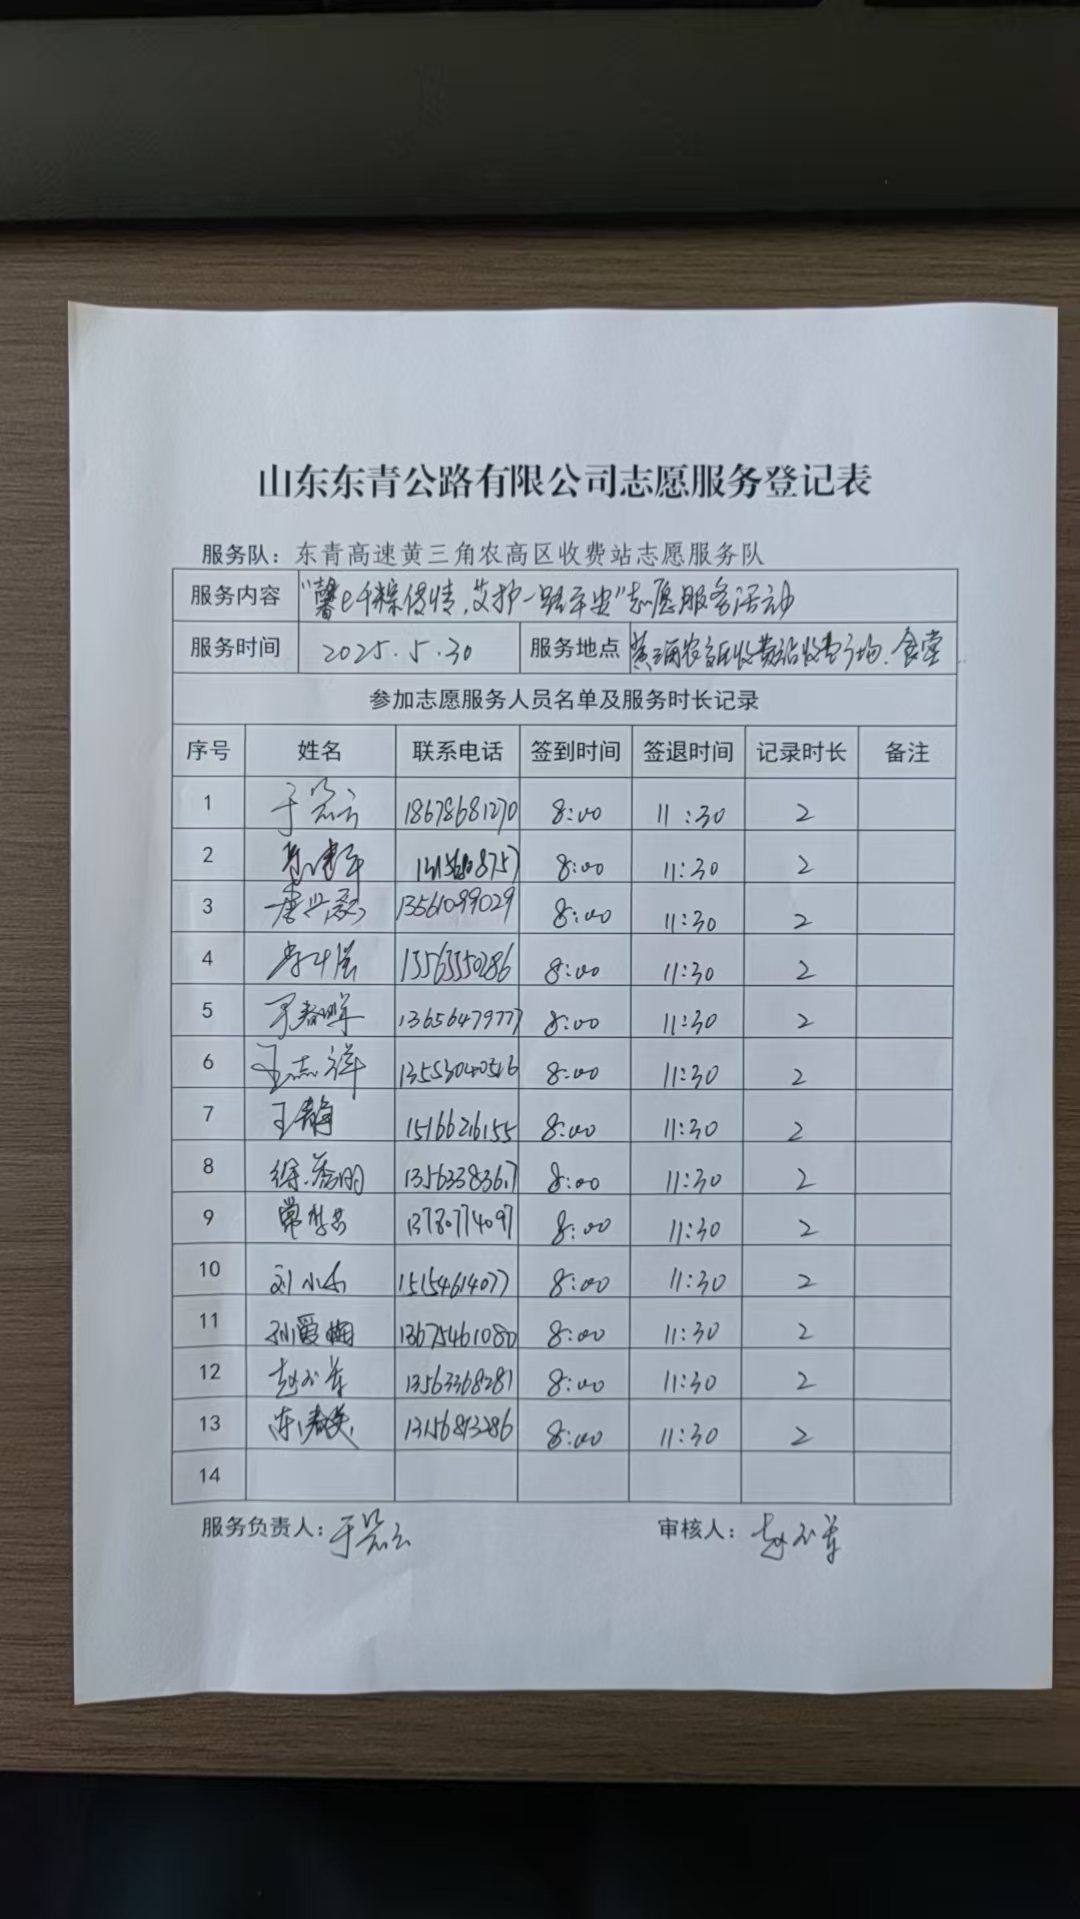 山东东青公路有限公司志愿服务登记表
服务队：东青高速黄三角农高区收费站志愿服务队
服务内容 "馨e千粽传情，艾护一路平安"志愿服务活动
服务时间 2025.5.30 服务地点 黄三角农高区收费站收费广场、食堂
参加志愿服务人员名单及服务时长记录
序号 姓名 联系电话 签到时间 签退时间 记录时长 备注
1 于 18678681270 8:00 11:30 2
2 8:00 11:30 2
3 13561099029 8:00 11:30 2
4 13563550286 8:00 11:30 2
5 13656479777 8:00 11:30 2
6 王志祥 13553040516 8:00 11:30 2
7 王静 15166216155 8:00 11:30 2
8 徐秀明 8:00 11:30 2
9 8:00 11:30 2
10 刘小 15154614077 8:00 11:30 2
11 孙爱梅 13675461080 8:00 11:30 2
12 赵 13563368281 8:00 11:30 2
13 13156813286 8:00 11:30 2
14
服务负责人：于 审核人：赵